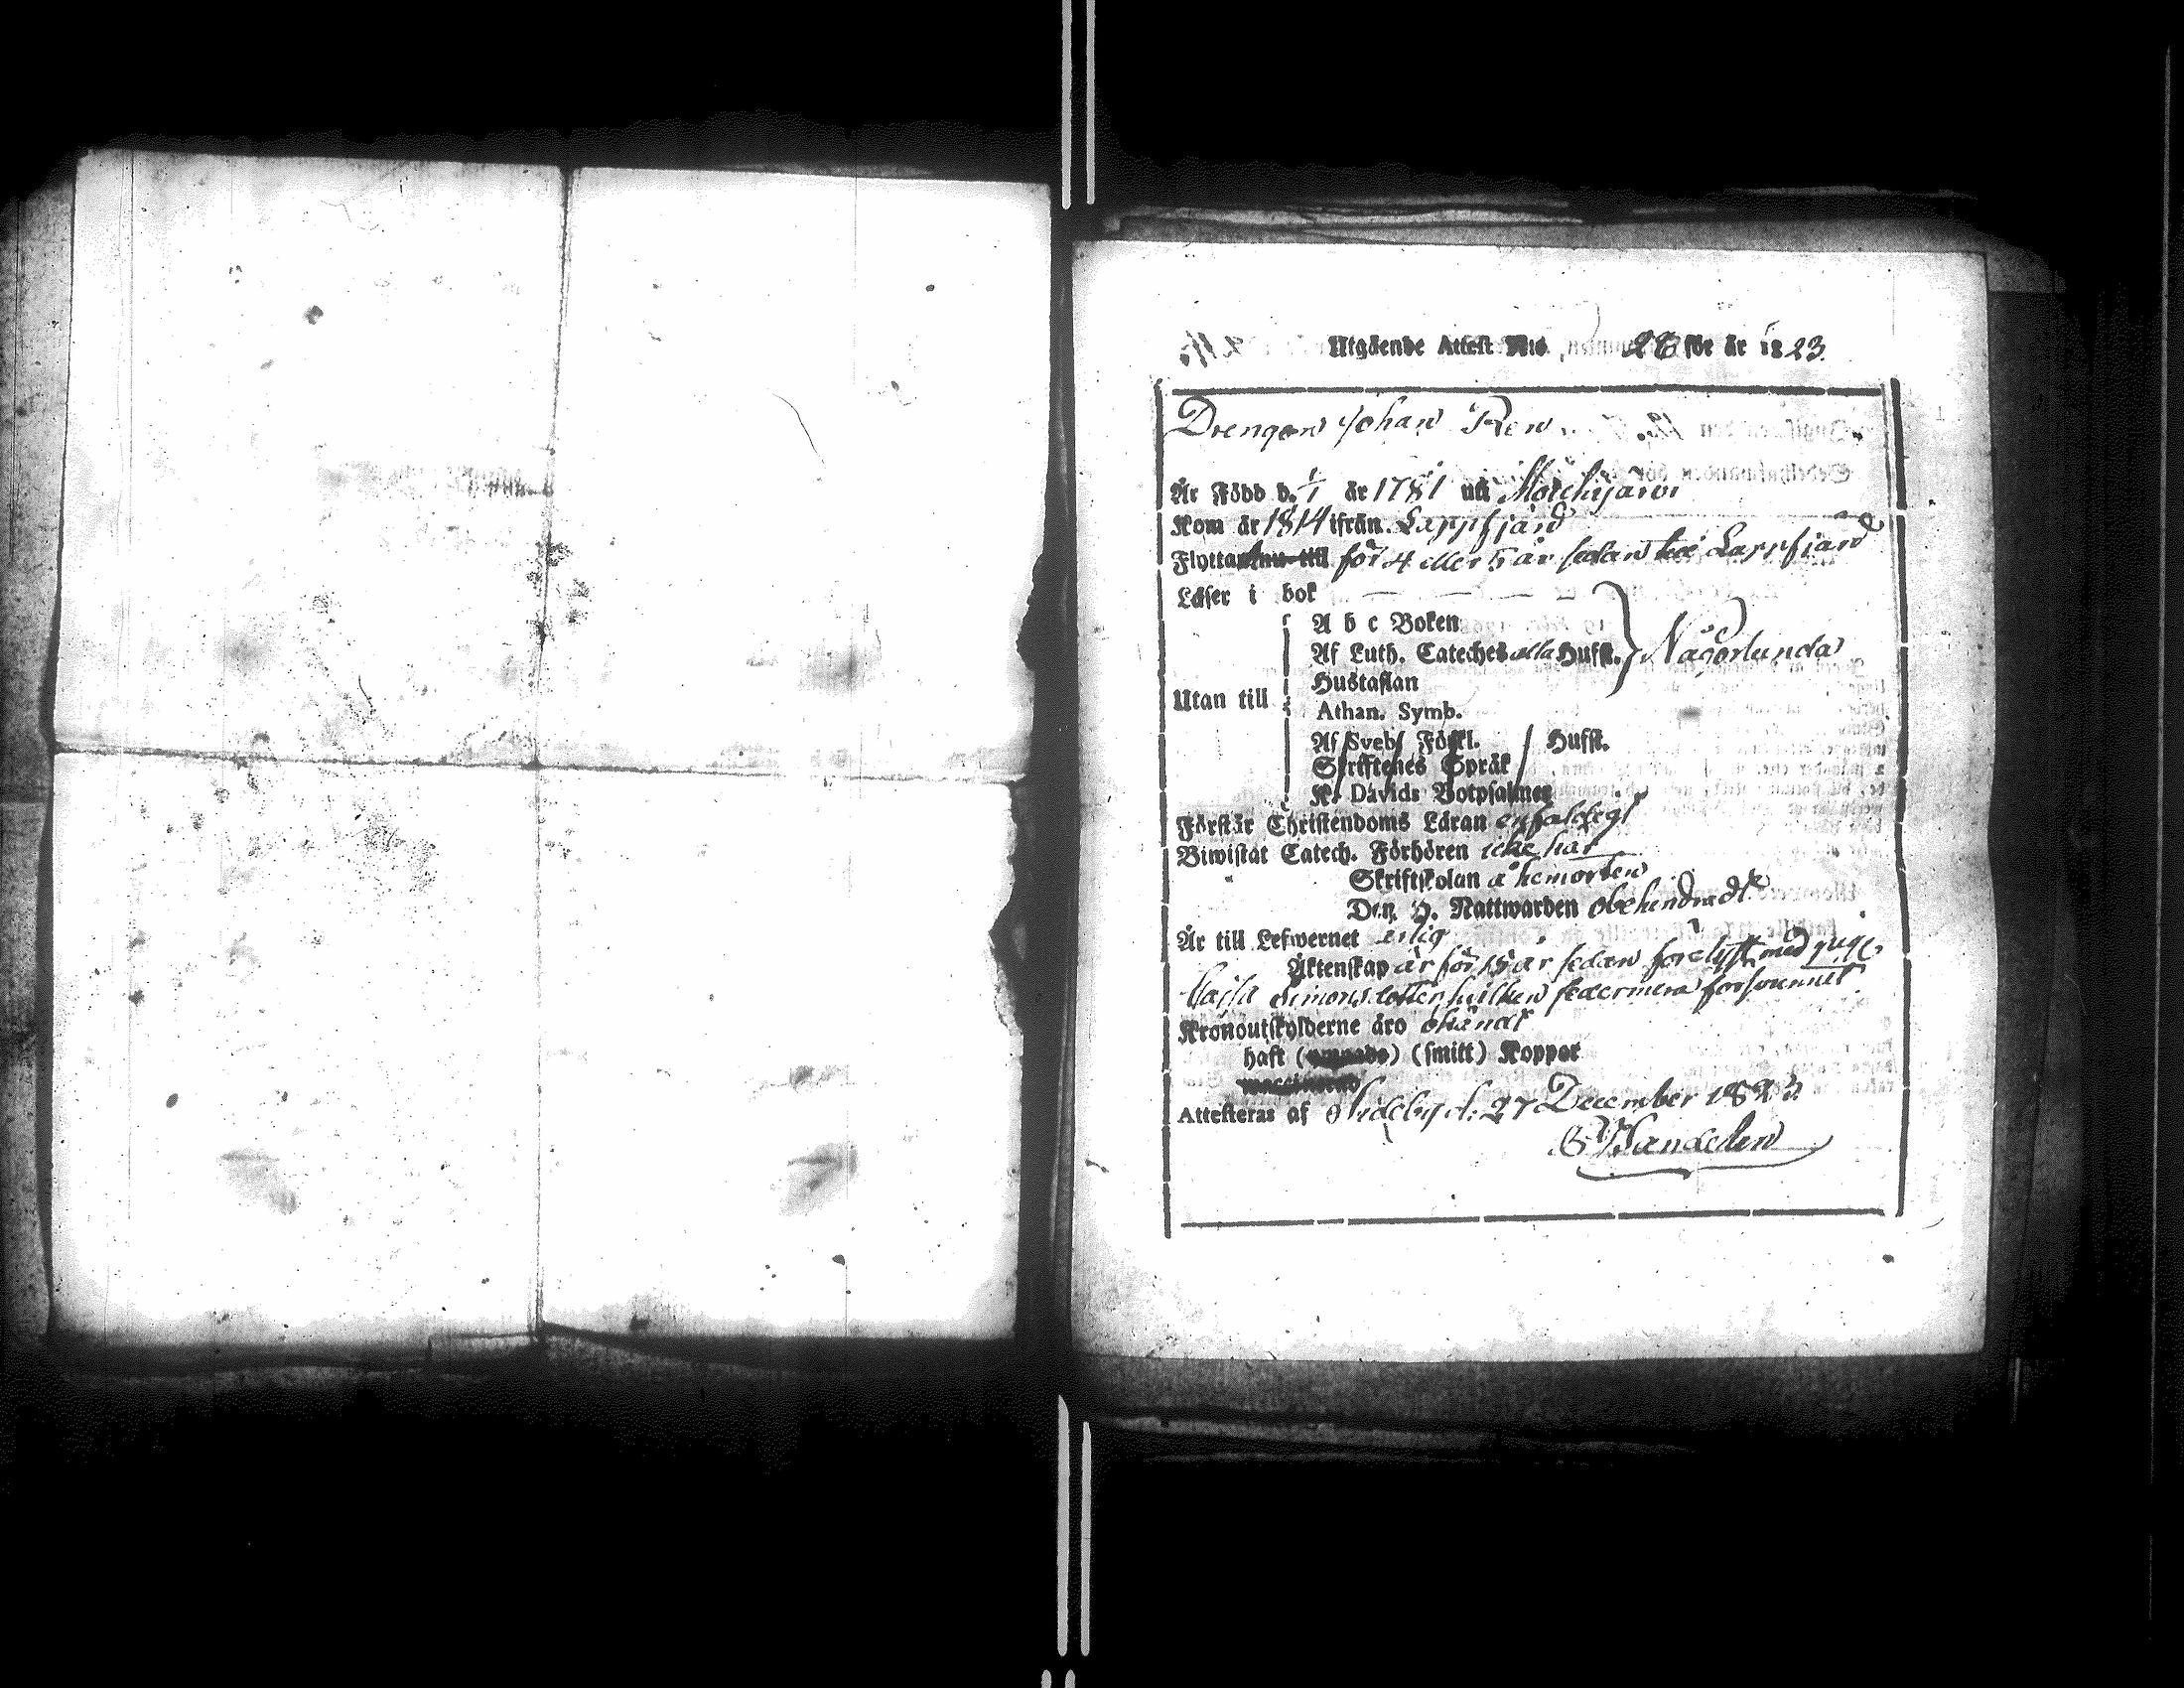 Utgående Attest N:o 28 för år 1823.
Drengen Johan Ren
Är Född d. 1/1 år 1781 uti
Kom år 1814 ifrån Lappfjärd
Flyttar nu till för 4 eller 5 år sedan till Lappfjärd
Läser i bok
A b c Boken
Af Luth. Cateches alla Hufst. Någorlunda
Hustaflan
Utan till
Athan. Symb.
Af Sveb. Förkl. Hufst.
Skriftenes Språk
K. Davids Botpsalmer
Förstår Christendoms Läran enfaldigt
Biwistat Catech. Förhören icke här
Skriftskolan å hemorten
Den H. Nattwarden obehindradt
Är till Lefwernet ärlig
Äktenskap är för 15 år sedan förelyst med pig.
Cajsa Simonsdotter, hvilken sedermera försvunnit
Kronoutskylderne äro okändt
haft (smitt) Koppor
Attesteras af Sideby d. 27 December 1823.